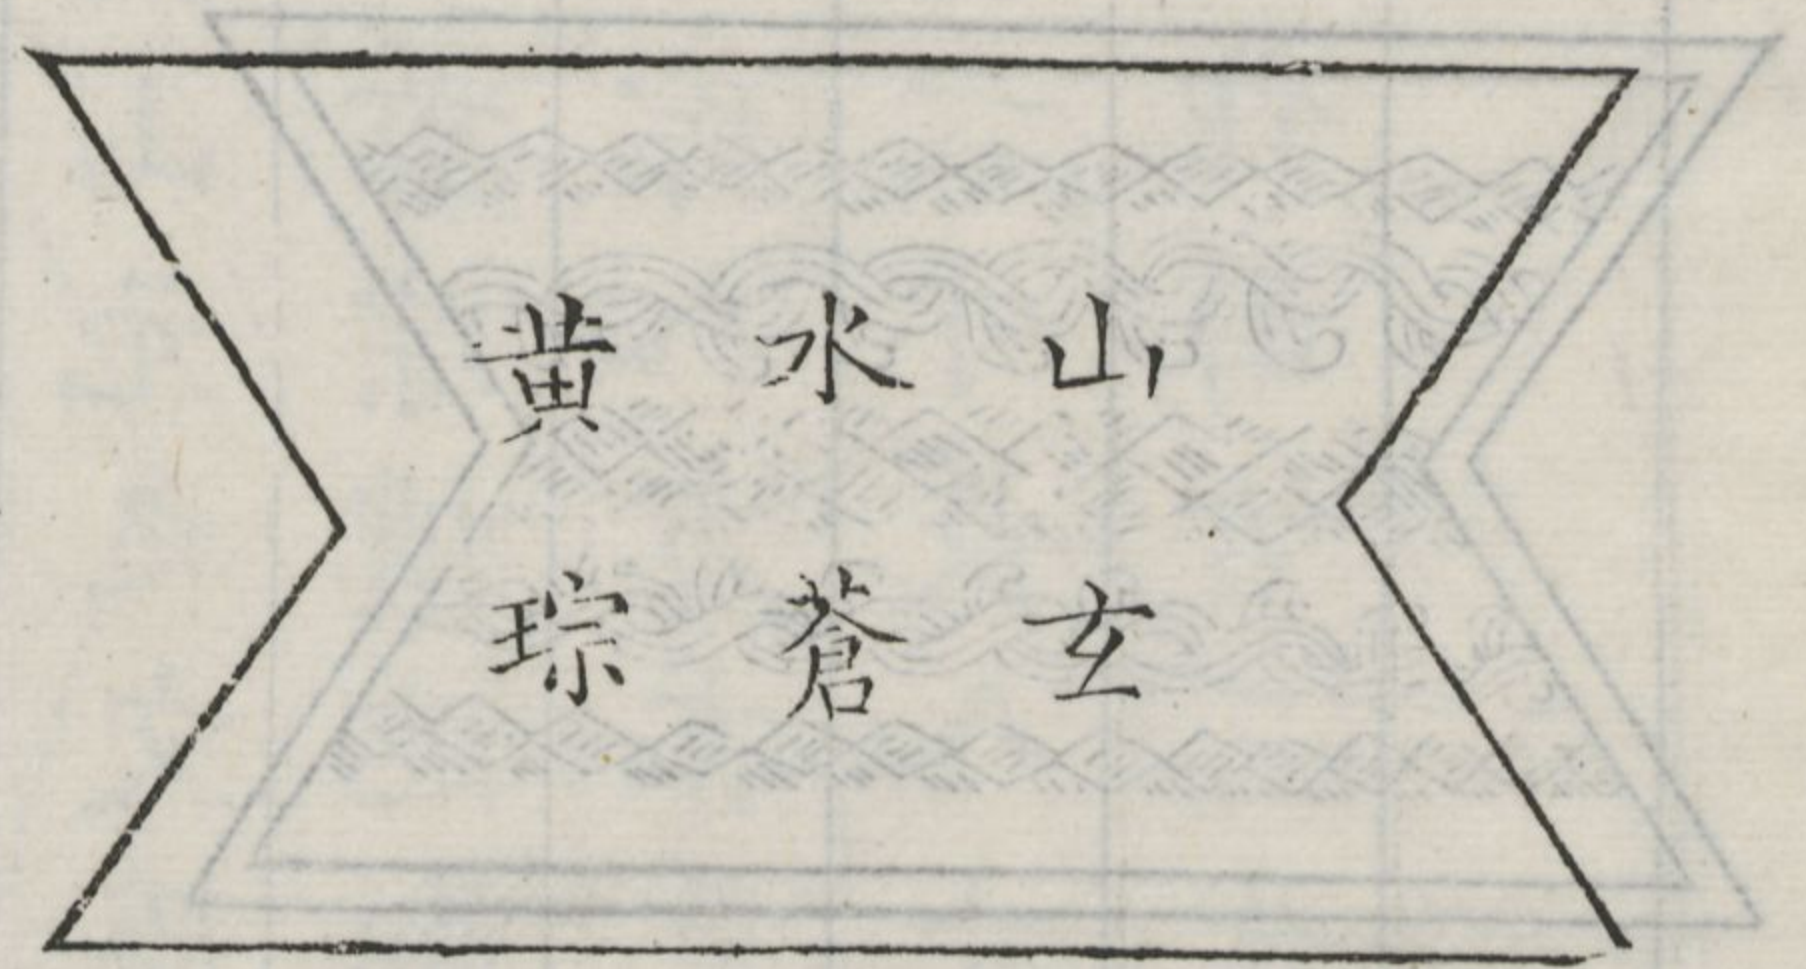 山玄
水蒼
黃琮